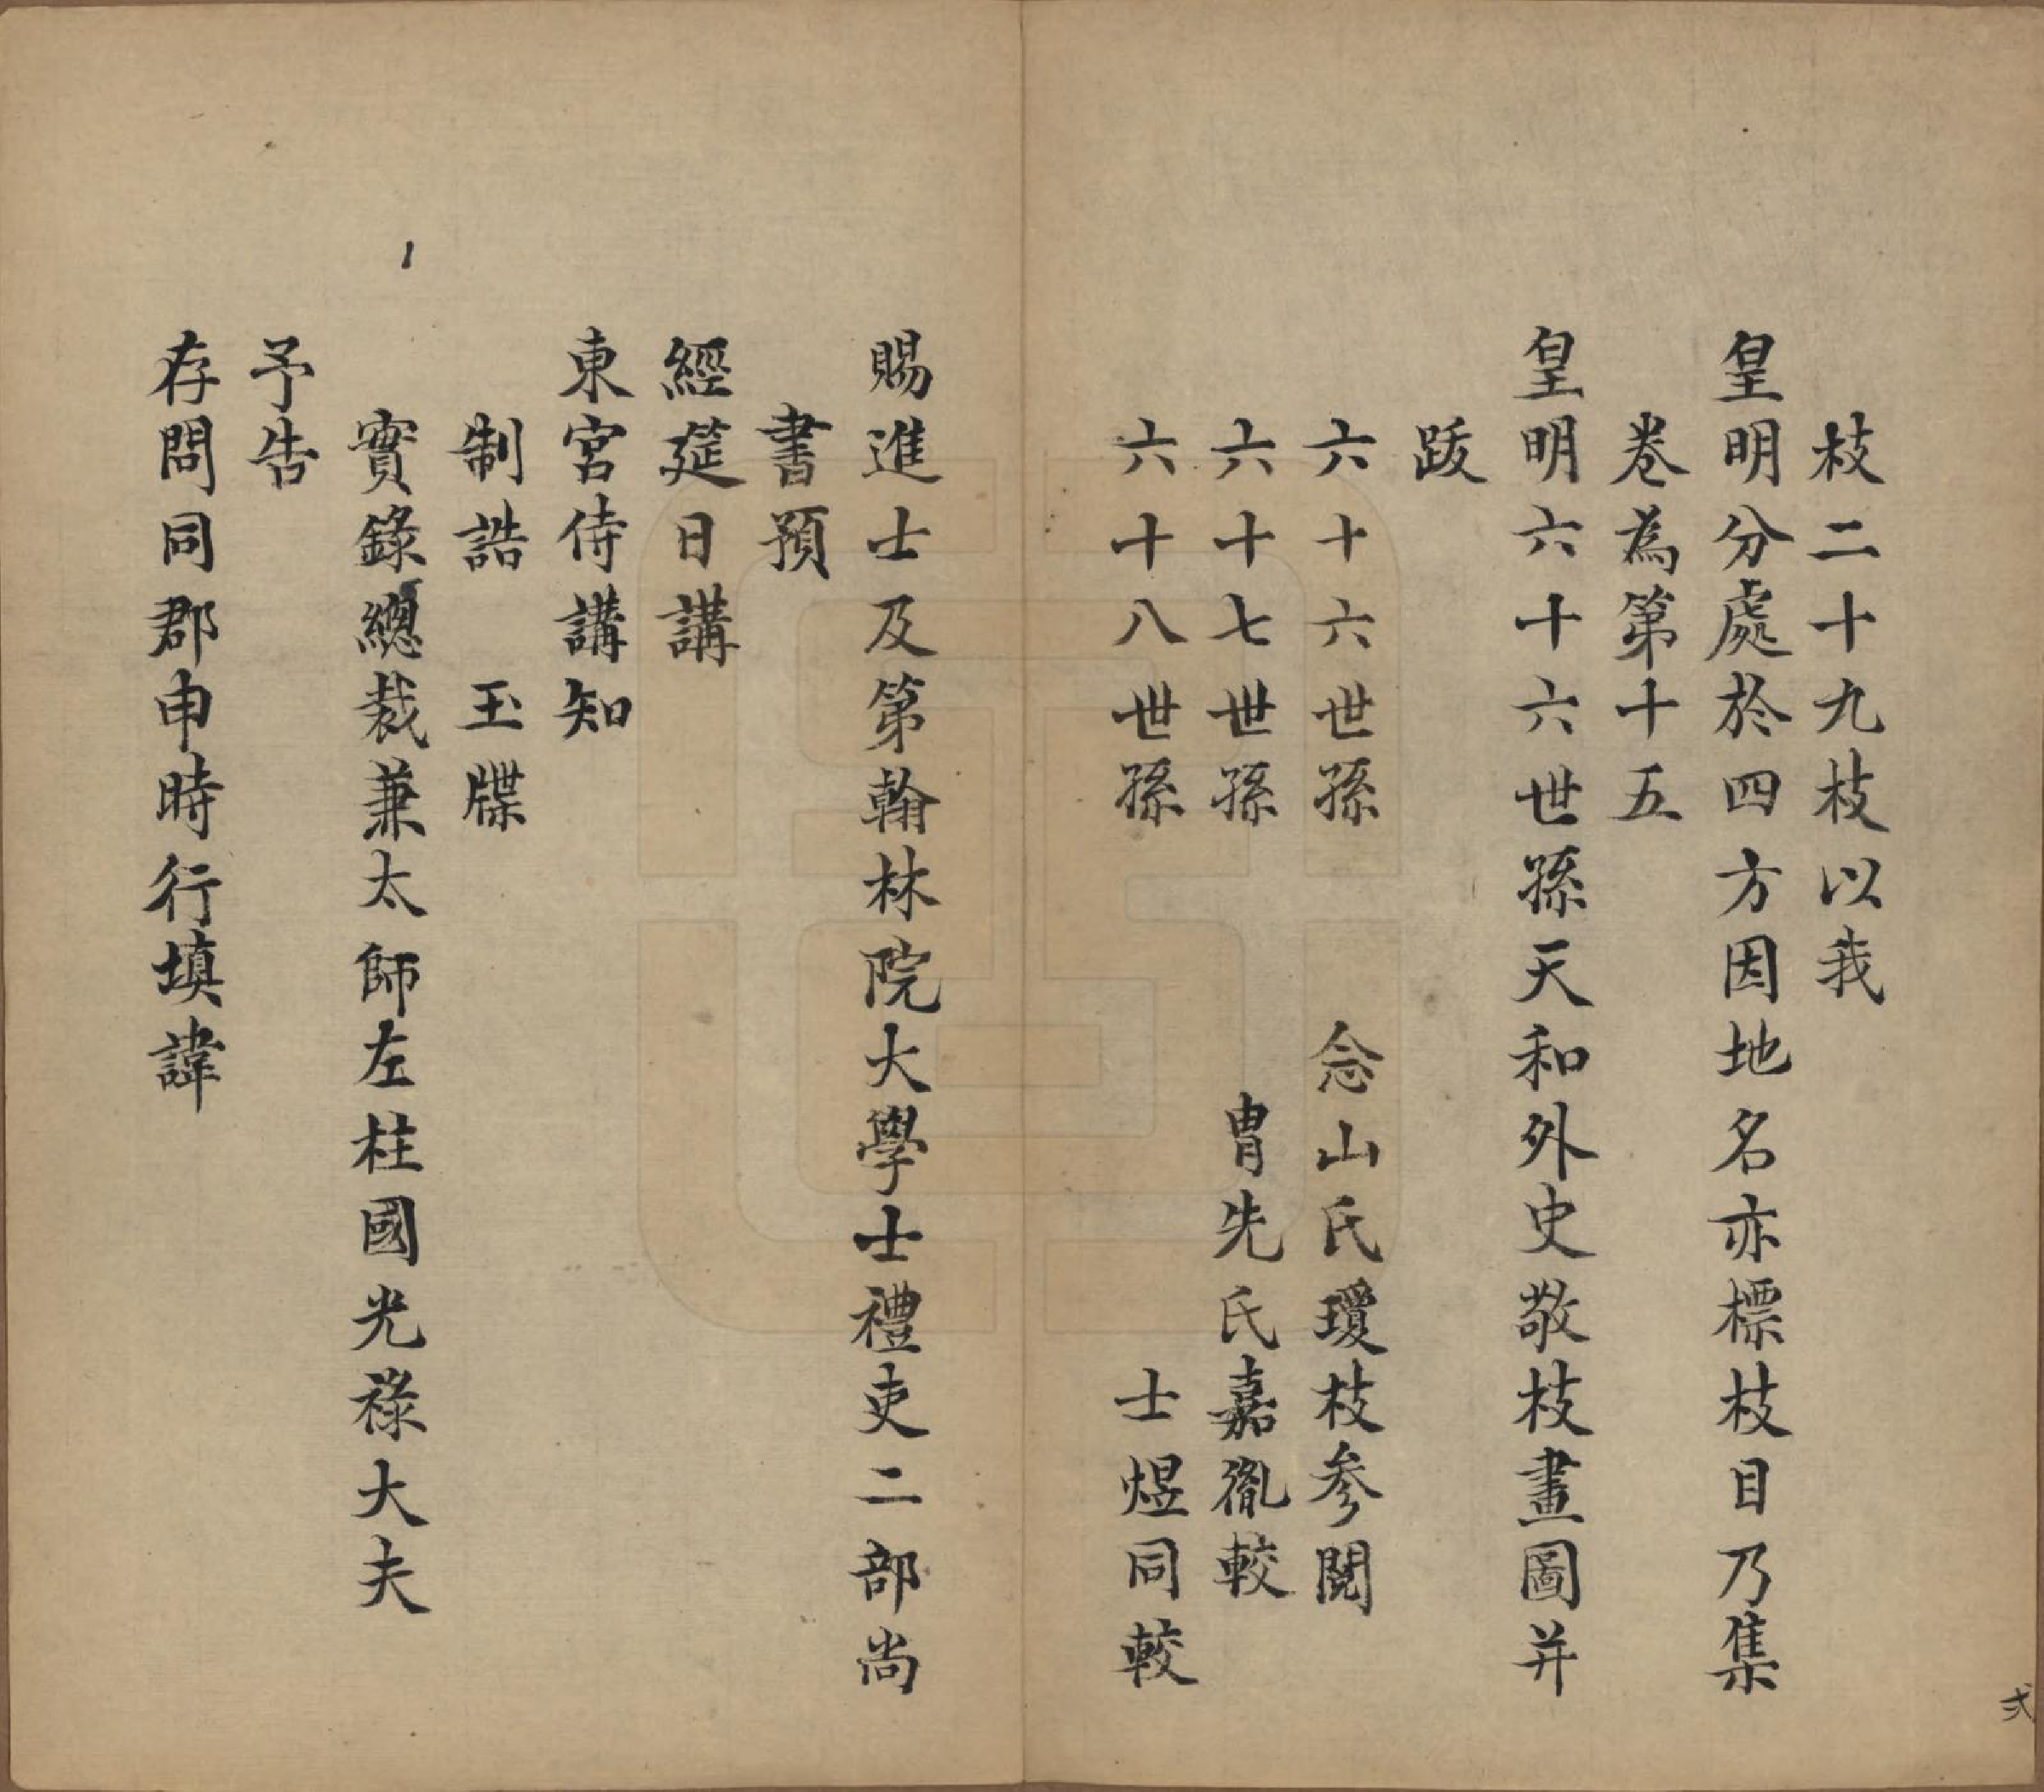 枝二十九枝以我
皇明分處於四方因地名亦標枝目乃集
卷為第十五
皇明六十六世孫天和外史敬枝畫圖并
跋
六十六世孫 念山氏瓊枝參閱
六十七世孫 冑先氏嘉胤較
六十八世孫 士煜同較
賜進士及第翰林院大學士禮吏二部尚
書預
經筵日講
東宮侍講知
制誥 玉牒
實錄總裁兼太師左柱國光祿大夫
予告
存問同郡申時行填諱
弍